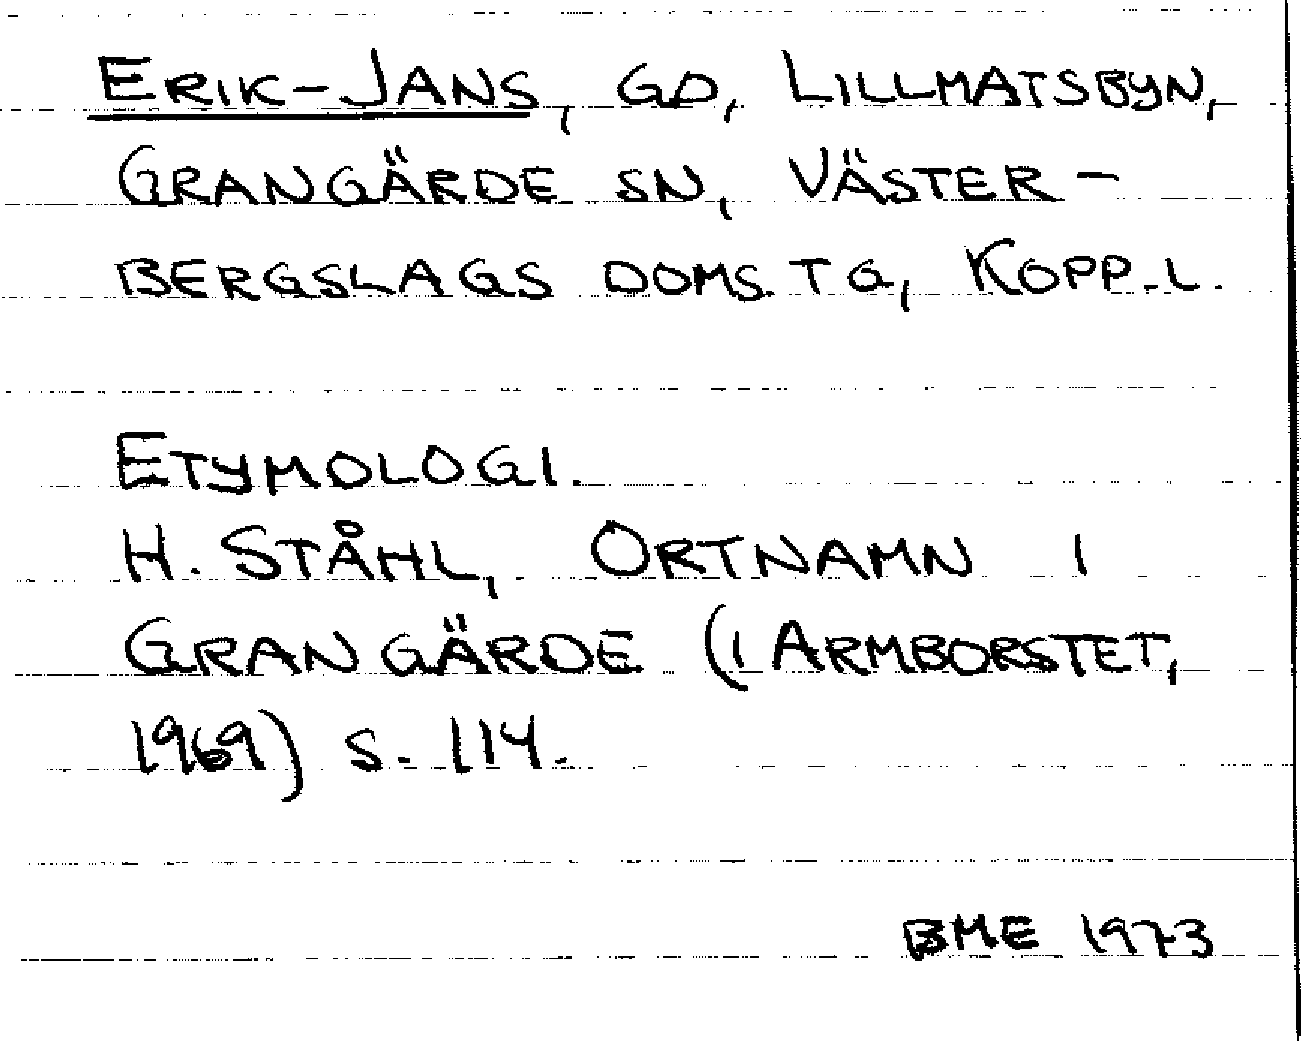 ERIK-JANS, GD, LILLMATSBYN,
GRANGÄRDE SN, VÄSTER-
BERGSLAGS DOMS.TG, KOPP.L.
ETYMOLOGI.
H. STÅHL, ORTNAMN I
GRANGÄRDE (I ARMBORSTET,
1969) S. 114.
BME 1973